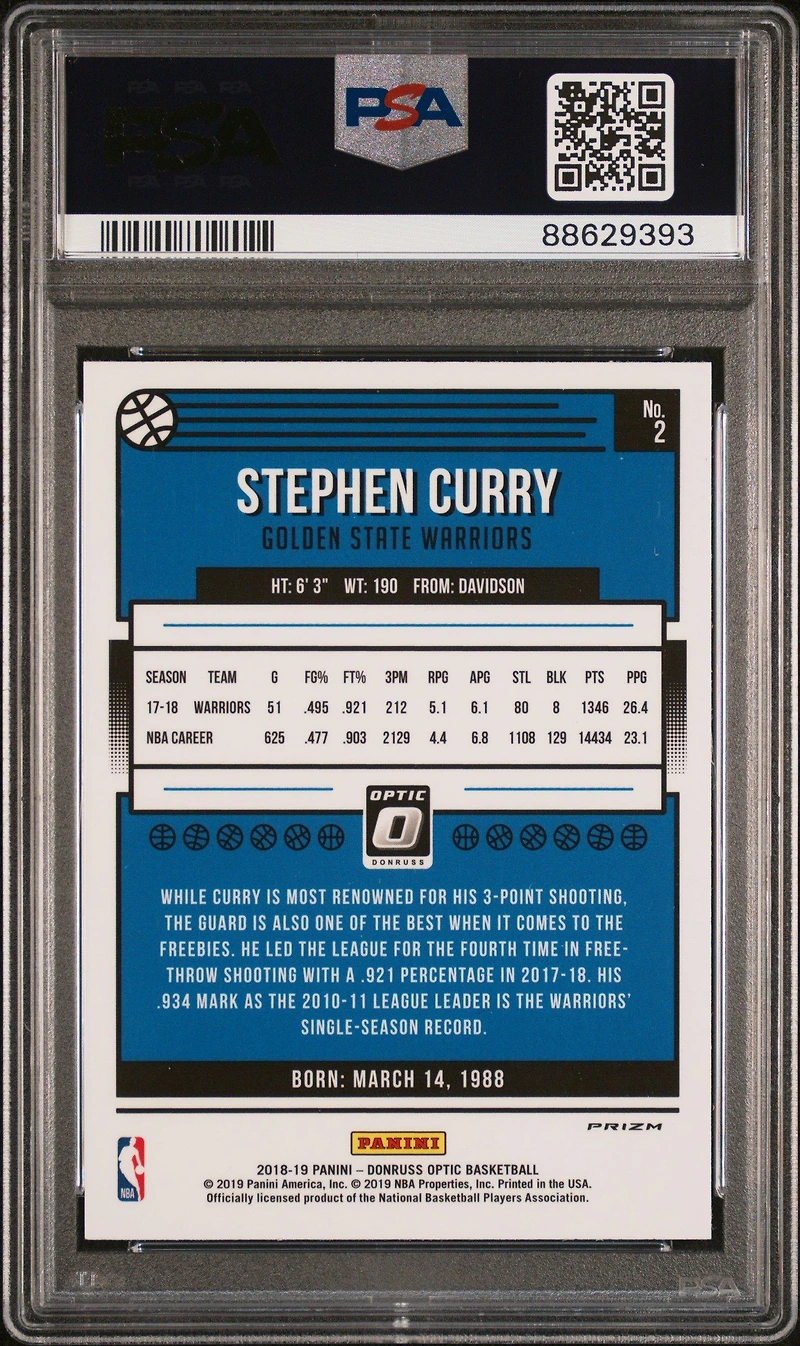 PSA
88629393
No.
2
STEPHEN CURRY
GOLDEN STATE WARRIORS
HT: 6' 3" WT: 190 FROM: DAVIDSON
SEASON TEAM G FG% FT% 3PM RPG APG STL BLK PTS PPG
17-18 WARRIORS 51 .495 .921 212 5.1 6.1 80 8 1346 26.4
NBA CAREER 625 .477 .903 2129 4.4 6.8 1108 129 14434 23.1
OPTIC
O
DONRUSS
WHILE CURRY IS MOST RENOWNED FOR HIS 3-POINT SHOOTING,
THE GUARD IS ALSO ONE OF THE BEST WHEN IT COMES TO THE
FREEBIES. HE LED THE LEAGUE FOR THE FOURTH TIME IN FREE-
THROW SHOOTING WITH A .921 PERCENTAGE IN 2017-18. HIS
.934 MARK AS THE 2010-11 LEAGUE LEADER IS THE WARRIORS'
SINGLE-SEASON RECORD.
BORN: MARCH 14, 1988
PRIZM
PANINI
NBA
2018-19 PANINI – DONRUSS OPTIC BASKETBALL
© 2019 Panini America, Inc. © 2019 NBA Properties, Inc. Printed in the USA.
Officially licensed product of the National Basketball Players Association.
PSA